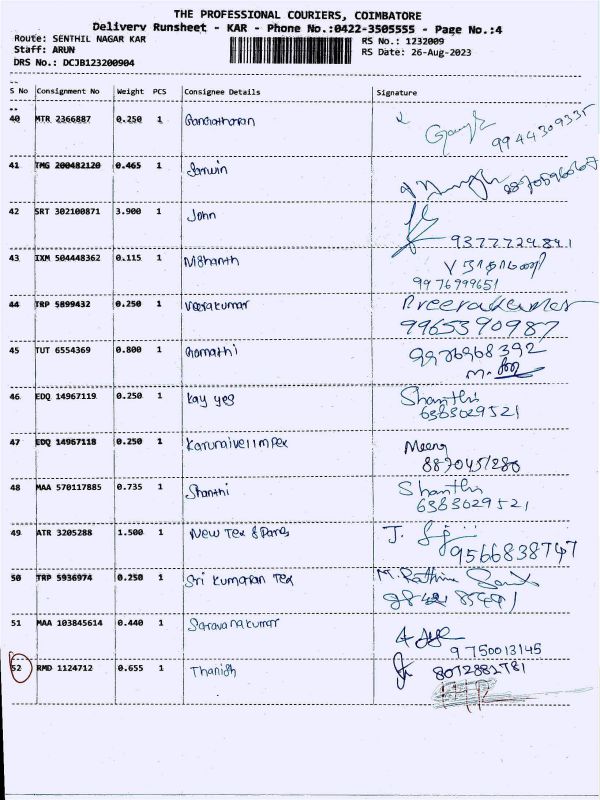 THE PROFESSIONAL COURIERS, COIMBATORE
Delivery Runsheet - KAR - Phone No.:0422-3505555 - Page No.:4
Route: SENTHIL NAGAR KAR RS No.: 1232009
Staff: ARUN RS Date: 26-Aug-2023
DRS No.: DCJB123200904
S No Consignment No Weight PCS Consignee Details Signature
40 MTR 2366887 0.250 1 9944309335
41 TMG 200482120 0.465 1
42 SRT 302100871 3.900 1 John
9377729891
43 IXM 504448362 0.115 1 Nishanth
9976799651
44 TRP 5899432 0.250 1 Veerakumar
9965390987
45 TUT 6554369 0.800 1 Gomathi 9976968392
46 EDQ 14967119 0.250 1 Kay yes Shanthi
6383029521
47 EDQ 14967118 0.250 1 Karunaivel impex Meena
48 MAA 570117885 0.735 1 Shanthi Shanthi
6383029521
49 ATR 3205288 1.500 1 New Tex &
9566838747
50 TRP 5936974 0.250 1 Sri Kumaran Tex M. Rathina
51 MAA 103845614 0.440 1 Saravanakumar
9750013145
52 RMD 1124712 0.655 1 Thanish 8072882781